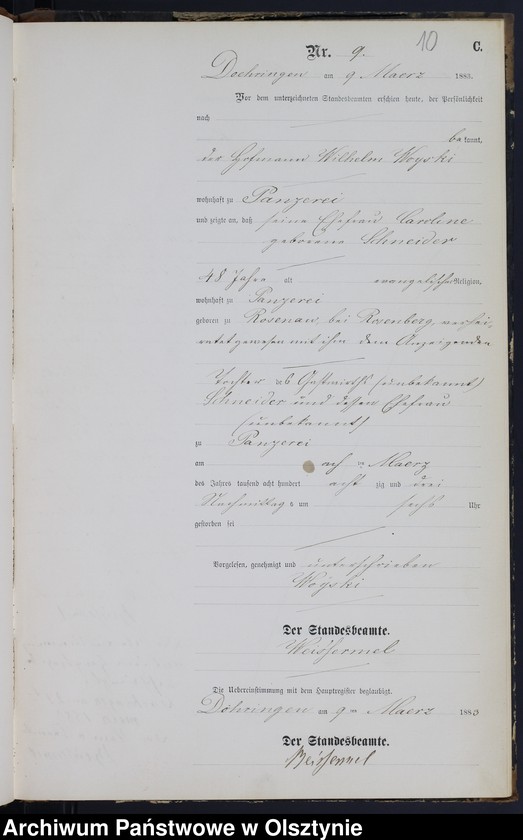 10
Nr. 9. C.
Doehringen am 9 Maerz 1883.
Vor dem unterzeichneten Standesbeamten erschien heute, der Persönlichkeit
nach
bekannt,
der Hofmann Wilhelm Woyski
wohnhaft zu Panzerei
und zeigte an, daß seine Ehefrau Caroline
geborene Schneider
48 Jahre alt evangelischer Religion,
wohnhaft zu Panzerei
geboren zu Rosenau, bei Rosenberg, verhei-
ratet gewesen mit ihm dem Anzeigenden
Tochter des Gastwirths (unbekannt)
Schneider und dessen Ehefrau
(unbekannt)
zu Panzerei
am ach ten Maerz
des Jahres tausend acht hundert acht zig und drei
Nachmittag s um sechs Uhr
gestorben sei
Vorgelesen, genehmigt und unterschrieben
Woyski
Der Standesbeamte.
Weissermel
Die Uebereinstimmung mit dem Hauptregister beglaubigt.
Döhringen am 9ten Maerz 1883
Der Standesbeamte.
Weissermel
Archiwum Państwowe w Olsztynie